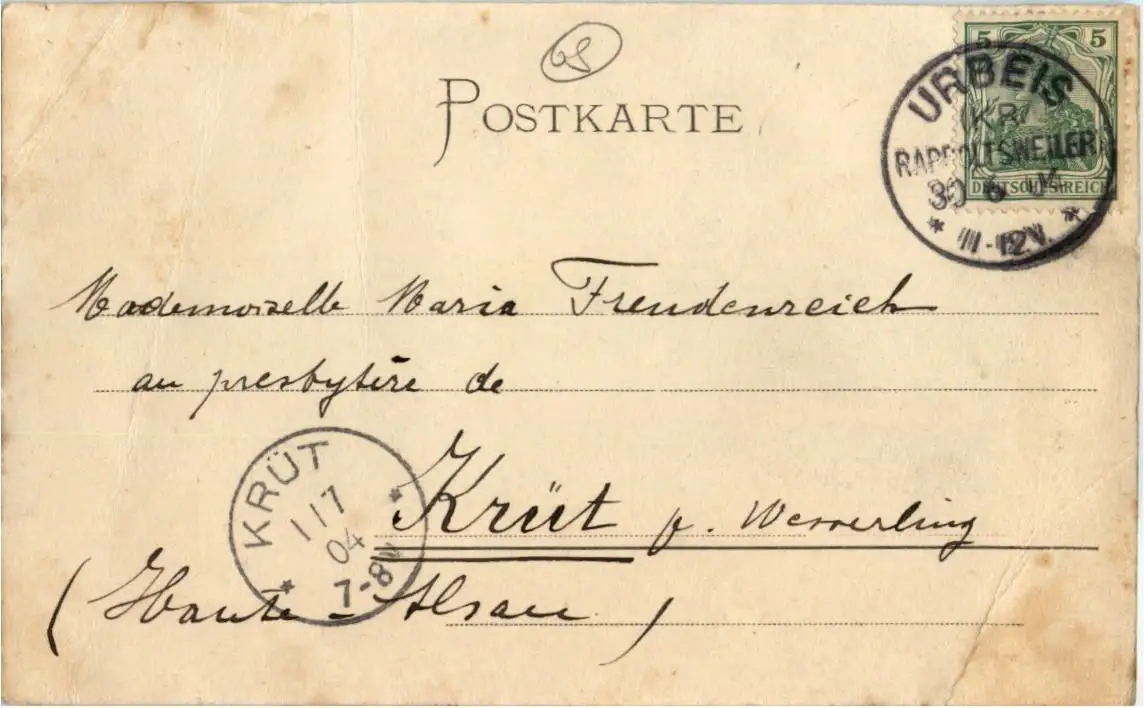 65
POSTKARTE
5 5
DEUTSCHES REICH
URBEIS
(KR.
RAPPOLTSWEILER)
30 6 04
* 11-12V. *
Mademoiselle Maria Freudenreich
au presbytère de
Krüt p. Wesserling
(Haute-Alsace)
KRÜT
1 7
04
* 7-8V *